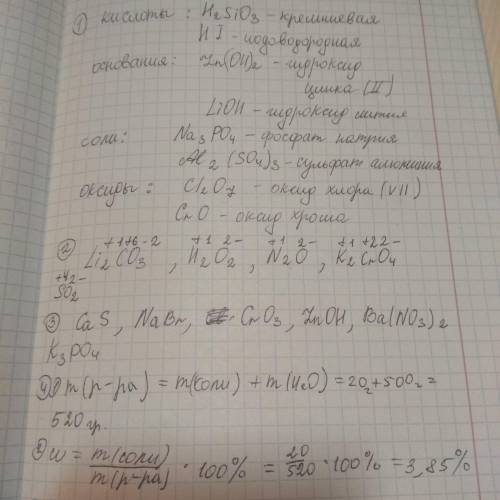 ① кислоты: H₂SiO₃ - кремниевая
HI - иодоводородная
основания: Zn(OH)₂ - гидроксид
цинка (II)
LiOH - гидроксид лития
соли: Na₃PO₄ - фосфат натрия
Al₂(SO₄)₃ - сульфат алюминия
оксиды: Cl₂O₇ - оксид хлора (VII)
CrO - оксид хрома
+1+6-2 +1 2- +1 2- +1+22-
② Li₂CO₃, H₂O₂, N₂O, K₂CrO₄
+42-
SO₂
③ CaS, NaBr, CrO₃, ZnOH, Ba(NO₃)₂
K₃PO₄
④ 1) m(р-ра) = m(соли) + m(H₂O) = 20г + 500г =
520 гр.
2) w = m(соли)/m(р-ра) · 100% = 20/520 · 100% = 3,85%